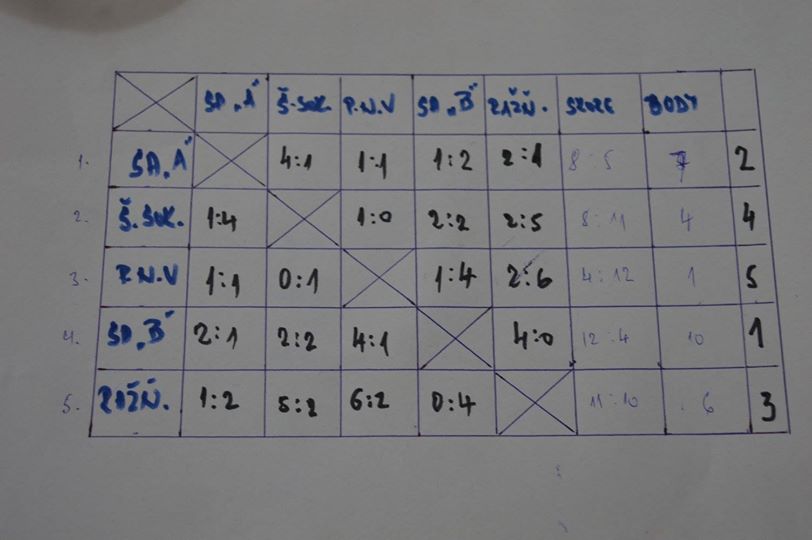 SD „A" Š.SOK. P.N.V SD „B" ROŽŇ. SKORE BODY
1. SD „A" 4:1 1:1 1:2 2:1 8:5 7 2
2. Š.SOK. 1:4 1:0 2:2 2:5 8:11 4 4
3. P.N.V 1:1 0:1 1:4 2:6 4:12 1 5
4. SD „B" 2:1 2:2 4:1 4:0 12:4 10 1
5. ROŽŇ. 1:2 5:2 6:2 0:4 11:10 6 3